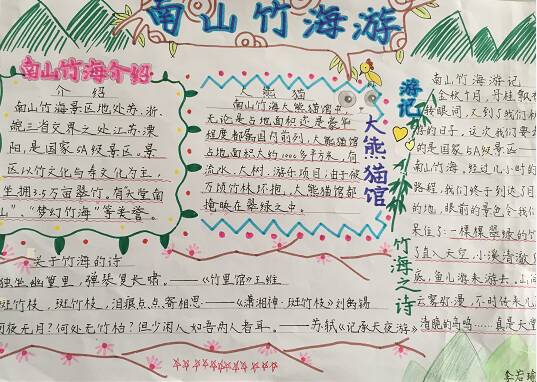 南山竹海游
南山竹海介绍
介绍
南山竹海景区地处苏、浙、
皖三省交界之处江苏溧
阳，是国家5A级景区。景
区以竹文化与寿文化为主，
坐拥3.5万亩翠竹。有天堂南
山"、"梦幻竹海"等美誉。
大熊猫
南山竹海大熊猫馆中，
无论是占地面积还是豪华
程度都属国内前列，大熊猫馆
占地面积大约1000多平方米，有
流水、大树、游乐项目，由于被
万顷竹林环抱，大熊猫馆都
掩映在翠绿之中。
大熊猫馆
游记
竹海之诗
南山竹海游记
金秋十月，丹桂飘
转眼间，又到了我们秋
的日子，这次我们要去
的是国家5A级景区——
南山竹海，经过几小时的
路程，我们终于到达了目
的地，眼前的景色令我们
呆住了：一棵棵翠绿的竹
直入天空，小溪清澈
底，鱼儿游来游去。山间
云雾弥漫，不时传来几
清脆的鸟鸣……真是天堂
关于竹海的诗
独坐幽篁里，弹琴复长啸。——《竹里馆》王维
斑竹枝，斑竹枝，泪痕点点寄相思——《潇湘神·斑竹枝》刘禹锡
何夜无月？何处无竹柏？但少闲人如吾两人者耳。——苏轼《记承天夜游》
李若瑜